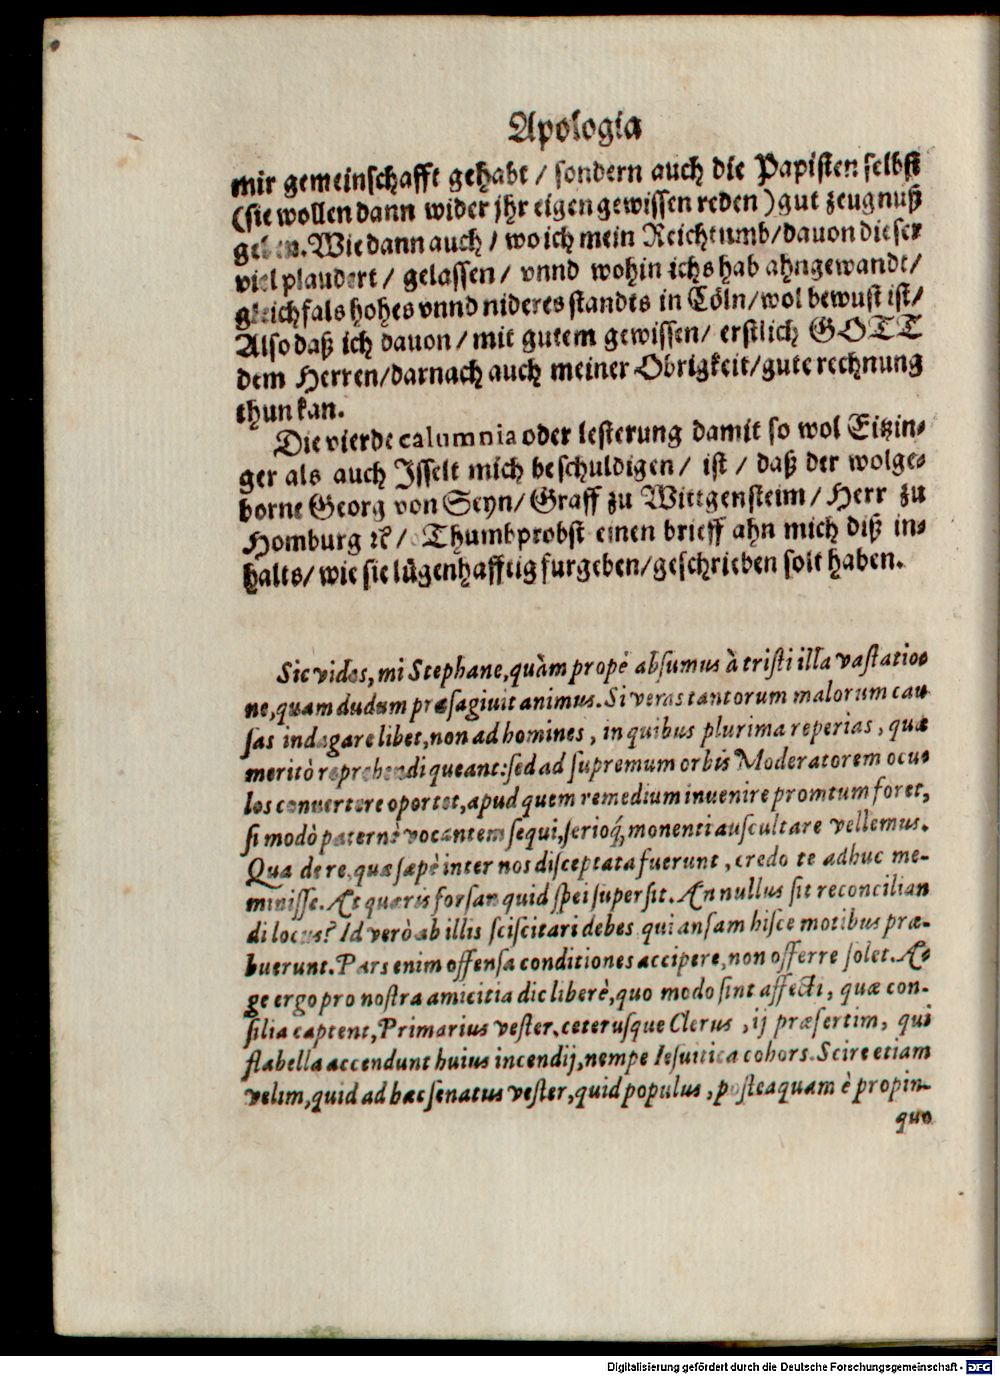 Apologia
mir gemeinschafft gehabt / sondern auch die Papisten selbst
(sie wollen dann wider jhr eigen gewissen reden) gut zeugnuß
geben. Wie dann auch / wo ich mein Reichtumb/dauon dieser
viel plaudert / gelassen / vnnd wohin ichs hab ahngewandt/
gleichfals hohes vnnd nideres standts in Cöln/wol bewust ist/
Also daß ich dauon / mit gutem gewissen/ erstlich GOTT
dem Herren/darnach auch meiner Obrigkeit/gute rechnung
thun kan.
Die vierde calumnia oder lesterung damit so wol Eitzin⸗
ger als auch Isselt mich beschuldigen / ist / daß der wolge⸗
borne Georg von Seyn/ Graff zu Wittgensteim / Herr zu
Homburg ꝛc/ Thumbprobst einen brieff ahn mich diß in⸗
halts/ wie sie lügenhafftig furgeben/geschrieben solt haben.
Sic vides, mi Stephane, quàm propè absumus à tristi illa vastatio-
ne, quam dudum præsagiuit animus. Si veras tantorum malorum cau-
sas indagare libet, non ad homines, in quibus plurima reperias, quæ
meritò reprehendi queant: sed ad supremum orbis Moderatorem ocu-
los conuertere oportet, apud quem remedium inuenire promtum foret,
si modò paternè vocantem sequi, serioq́, monenti auscultare vellemus.
Qua de re, quæ sæpè inter nos disceptata fuerunt, credo te adhuc me-
minisse. At quæris forsan quid spei supersit. An nullus sit reconcilian
di locus? Id verò ab illis sciscitari debes qui ansam hisce motibus præ-
buerunt. Pars enim offensa conditiones accipere, non offerre solet. A-
ge ergo pro nostra amicitia dic liberè, quo modo sint affecti, quæ con-
silia captent, Primarius vester, ceterusque Clerus, ij præsertim, qui
flabella accendunt huius incendij, nempe Iesuitica cohors. Scire etiam
velim, quid ad hæc senatus vester, quid populus, posteaquam è propin-
quo
Digitalisierung gefördert durch die Deutsche Forschungsgemeinschaft - DFG